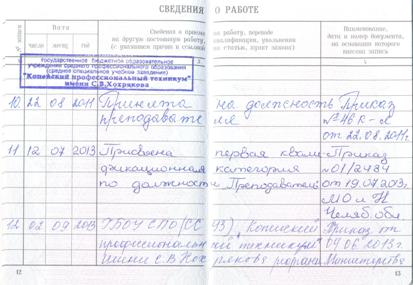 СВЕДЕНИЯ О РАБОТЕ
№ записи
Дата
число месяц год
Сведения о приеме на работу, переводе
на другую постоянную работу, квалификации, увольнении
(с указанием причин и ссылкой на статью, пункт закона)
Наименование,
дата и номер документа,
на основании которого
внесена запись
государственное бюджетное образовательное
учреждение среднего профессионального образования
(среднее специальное учебное заведение)
"Копейский профессиональный техникум"
имени С.В.Хохрякова
10 22 08 2011 Принята на должность Приказ
преподавателя № 46 К-л
от 22.08.2011г.
11 12 07 2013 Присвоена первая квали- Приказ
фикационная категория №01/2434
по должности Преподаватель от 19.07.2013г.
МО и Н
Челяб. обл
12 02 09 2013 ГБОУ СПО (ССУЗ) "Копейский Приказ от
профессиональный техникум" 04.06.2013г.
имени С.В Хохрякова Министерства
12 13